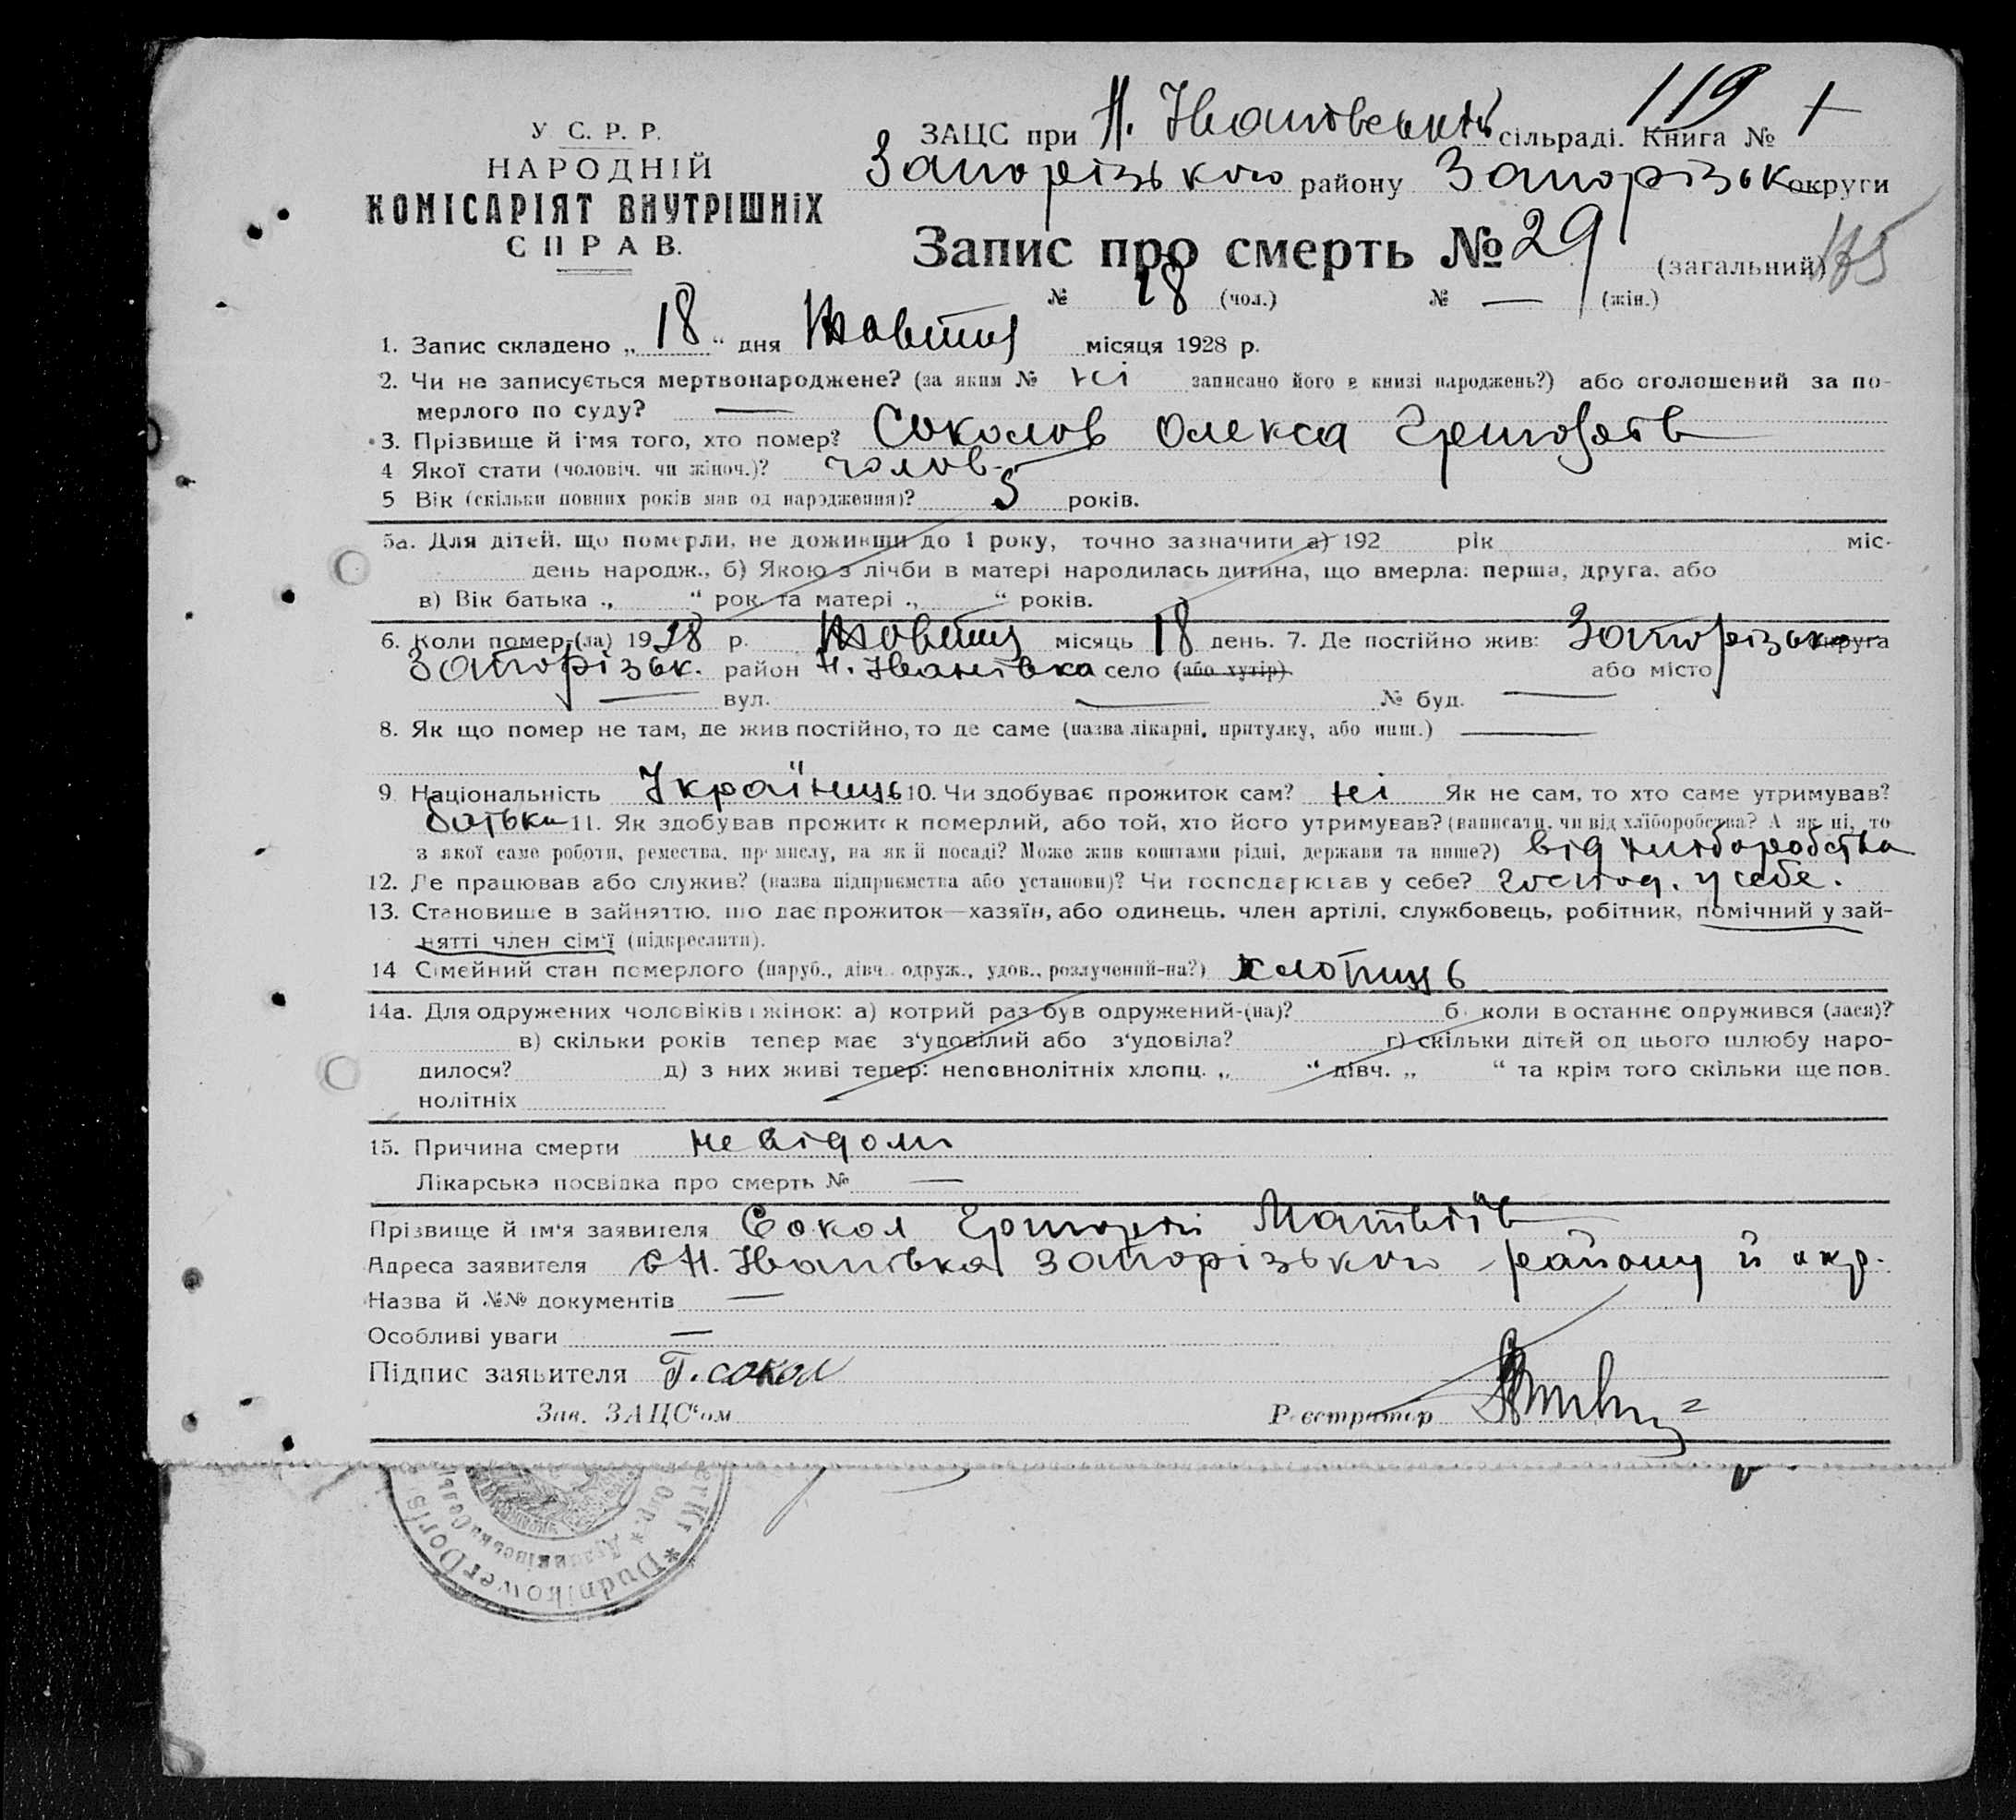 119
У С. Р. Р.
НАРОДНІЙ
КОМІСАРІЯТ ВНУТРІШНІХ
СПРАВ.
ЗАЦС при Н. Іванівській сільраді. Книга № 1
Запорізького району Запорізьк округи
Запис про смерть № 29 (загальний)
№ 18 (чол.) № — (жін.)
1. Запис складено „ 18 “ дня Жовтня місяця 1928 р.
2. Чи не записується мертвонароджене? (за яким № ні записано його в книзі народжень?) або оголошений за по-
мерлого по суду? —
3. Прізвище й і'мя того, хто помер? Соколов Олекса
4 Якої стати (чоловіч. чи жіноч.)? чолов.
5 Вік (скільки повних років мав од народження)? 5 років.
5а. Для дітей, що померли, не доживши до 1 року, точно зазначити а) 192 рік міс-
день народж., б) Якою з лічби в матері народилась дитина, що вмерла: перша, друга, або
в) Вік батька „ “ рок. та матері „ “ років.
6. Коли помер-(ла) 1928 р. Жовтня місяць 18 день. 7. Де постійно жив: Запорізьк округа
Запорізьк. район Н. Іванівка село (або хутір) або місто
— вул. — № буд. —
8. Як що помер не там, де жив постійно, то де саме (назва лікарні, притулку, або инш.) —
9. Національність Українець 10. Чи здобуває прожиток сам? ні Як не сам, то хто саме утримував?
батьки 11. Як здобував прожиток померлий, або той, хто його утримував? (написати, чи від хліборобства? А як ні, то
з якої саме роботи, ремества, промислу, на якій посаді? Може жив коштами рідні, держави та инше?) від хліборобства
12. Де працював або служив? (назва підприємства або установи)? Чи господарював у себе? господ. у себе.
13. Становище в зайняттю, що дає прожиток—хазяїн, або одинець, член артілі, службовець, робітник, помічний у зай-
нятті член сім'ї (підкреслити).
14 Сімейний стан померлого (паруб., дівч. одруж., удов., розлучений-на?) хлопець
14а. Для одружених чоловіків і жінок: а) котрий раз був одружений-(на)? б) коли востаннє одружився (лася)?
в) скільки років тепер має з'удовілий або з'удовіла? г) скільки дітей од цього шлюбу наро-
дилося? д) з них живі тепер: неповнолітніх хлопц. „ “ дівч. „ “ та крім того скільки ще пов.
нолітніх
15. Причина смерти невідома
Лікарська посвідка про смерть № —
Прізвище й ім'я заявителя Сокол Григорій Матвіїв
Адреса заявителя с Н. Іванівка Запорізького району й окр.
Назва й №№ документів —
Особливі уваги —
Підпис заявителя Г. Сокол
Зав. ЗАЦС'ом Реєстратор
Dudnikower Dorf